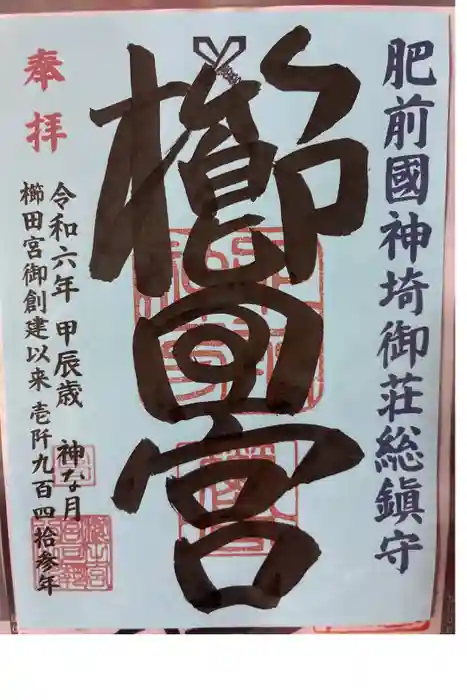 肥前國神埼御荘総鎮守
櫛田宮
奉拝
令和六年 甲辰歳 神な月
櫛田宮御創建以来 壱阡九百四拾参年